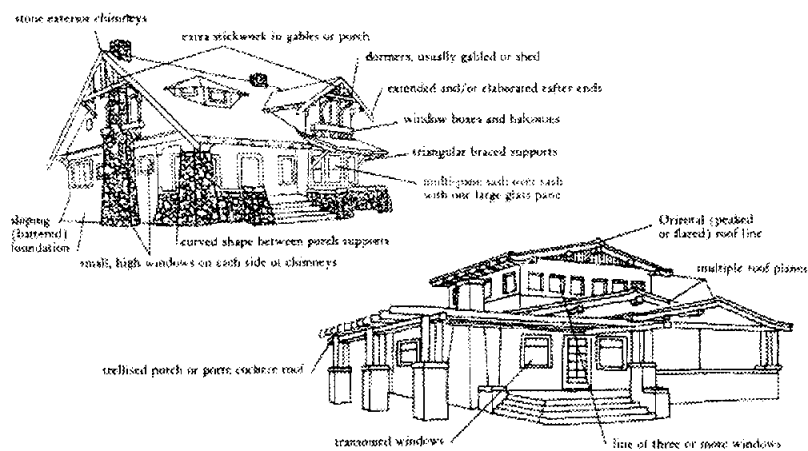 stone exterior chimneys
extra stickwork in gables or porch
dormers, usually gabled or shed
extended and/or elaborated rafter ends
window boxes and balconies
triangular braced supports
multi-pane sash over sash
with one large glass pane
sloping
(battered)
foundation
curved shape between porch supports
small, high windows on each side of chimneys
Oriental (peaked
or flared) roof line
multiple roof planes
trellised porch or porte cochere roof
transomed windows
line of three or more windows